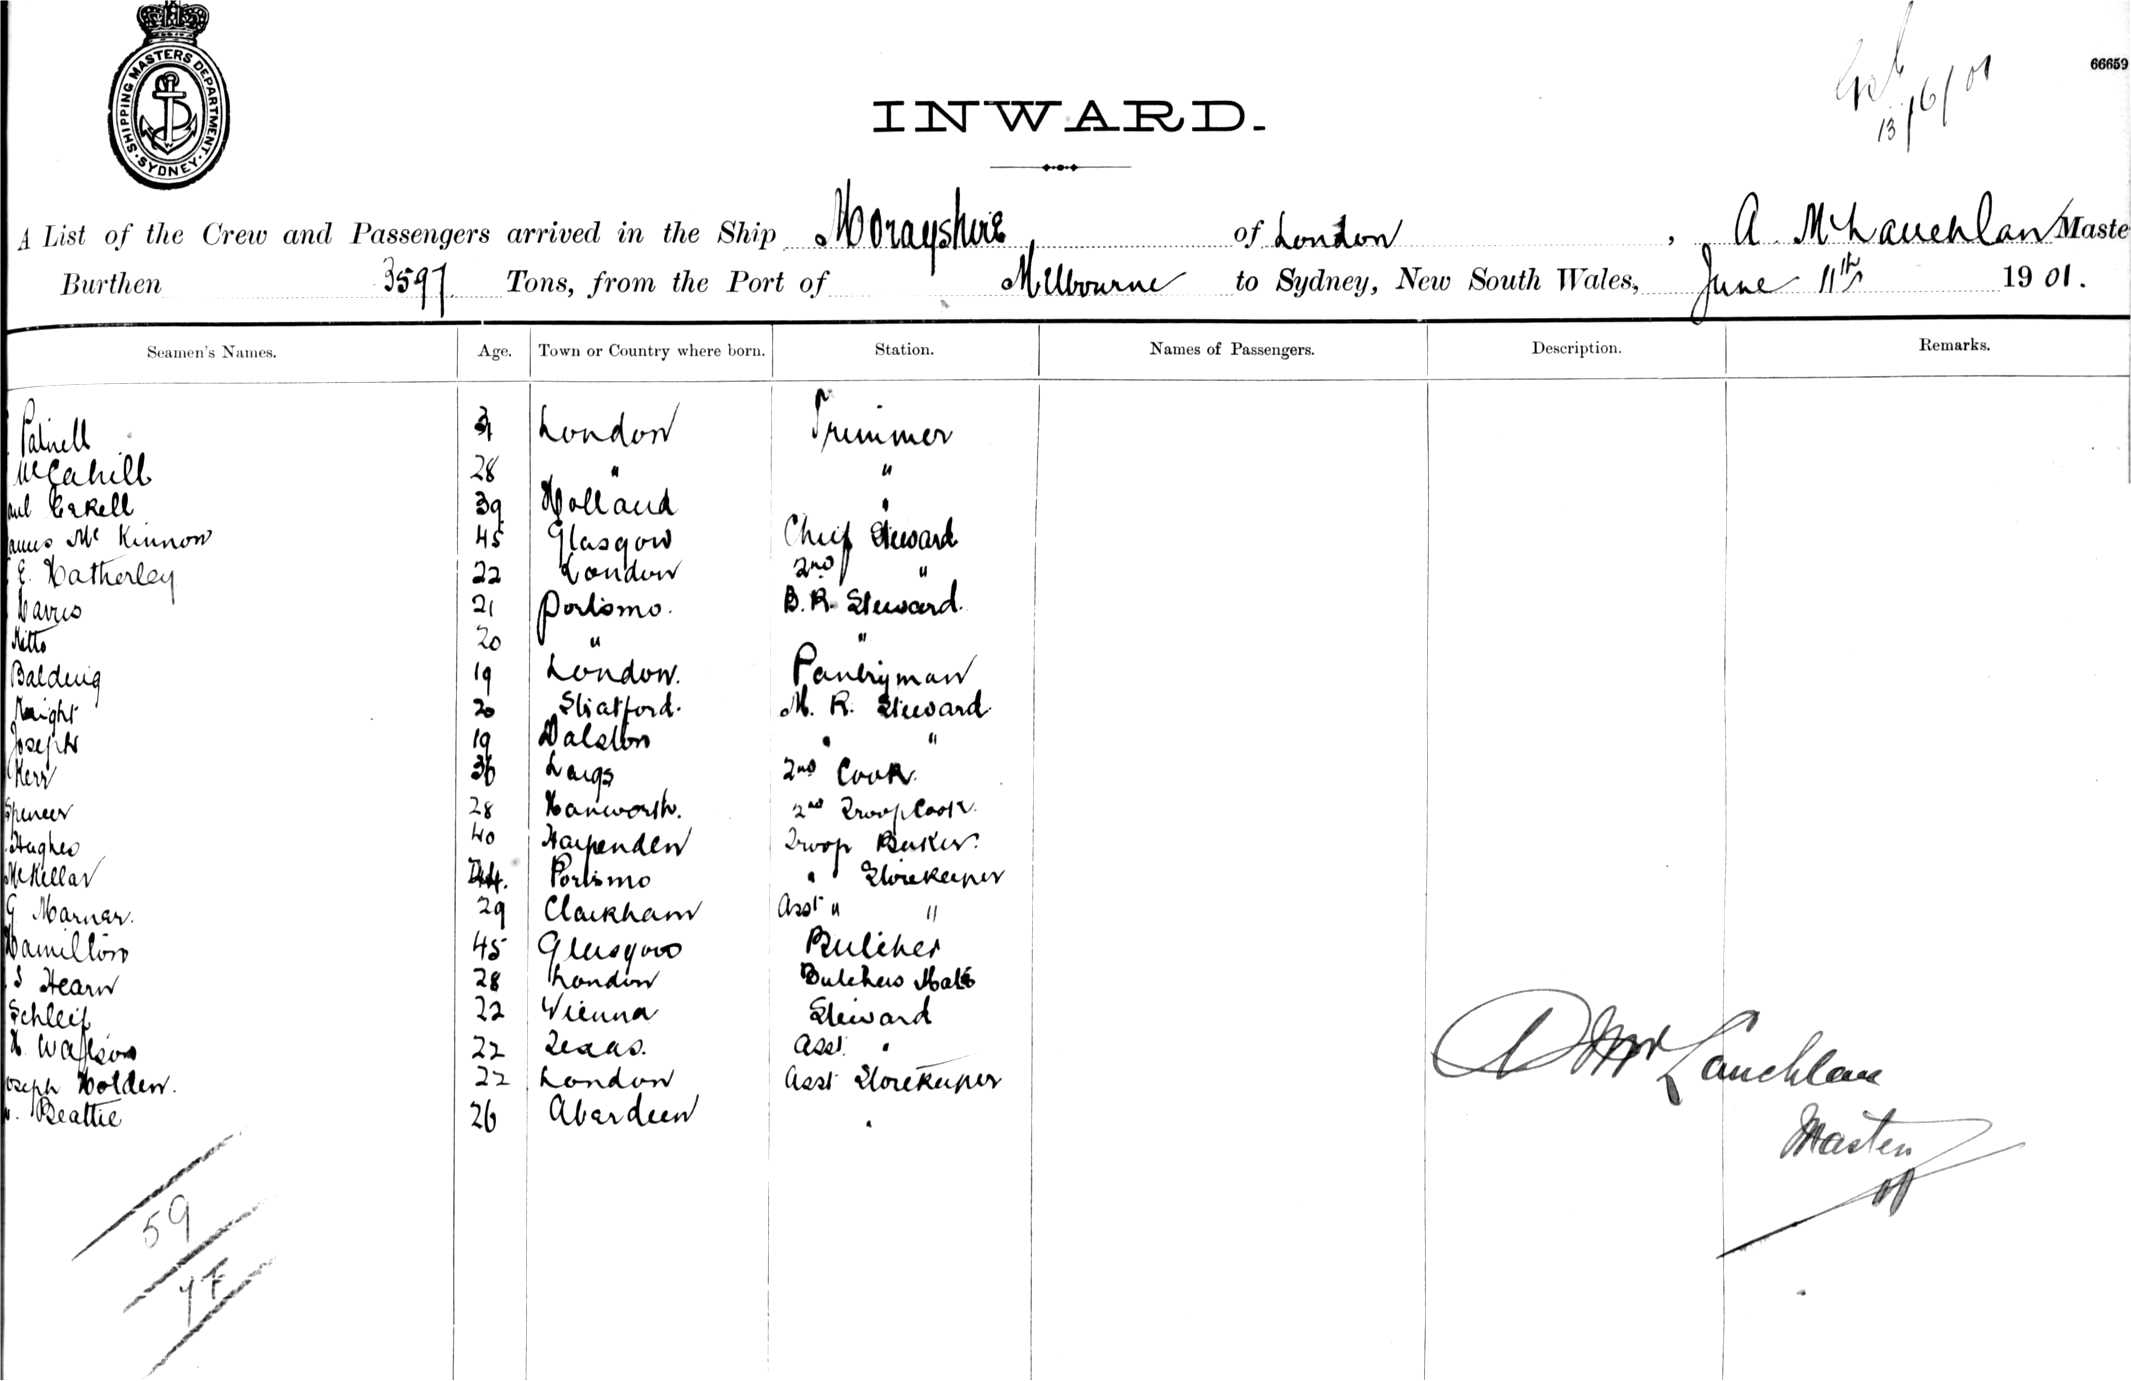 SHIPPING MASTERS DEPARTMENT. SYDNEY
66659
13/6/01
INWARD.
A List of the Crew and Passengers arrived in the Ship Morayshire of London, A. McLauchlan Maste
Burthen 3597 Tons, from the Port of Melbourne to Sydney, New South Wales, June 11th 1901.
Seamen's Names. Age. Town or Country where born. Station. Names of Passengers. Description. Remarks.
31 London Trimmer
McCahill 28 " "
aul 39 Holland "
ames Mc Kinnon 45 Glasgow Chief Steward
E. Hatherley 22 London 2nd "
21 Portsmo. B. R. Steward.
Kitto 20 " "
Balding 19 London. Pantryman
Knight 20 Stratford. M. R. Steward.
Joseph 19 Dalston " "
Kerr 36 Largs 2nd Cook.
Spencer 28 Hanworth. 2nd Troop Cook.
Hughes 40 Harpenden Troop Baker.
McKellar Portsmo " Storekeeper
G Marnar. 29 Clackham Asst " "
Hamilton 45 Glasgow Butcher
S Hearn 28 London Butchers Mate
Schleif 22 Vienna Steward
H. Watson 22 Texas. Asst. "
oseph Holden. 22 London Asst Storekeeper
Beattie 26 Aberdeen "
A McLauchlan
Master
59
77